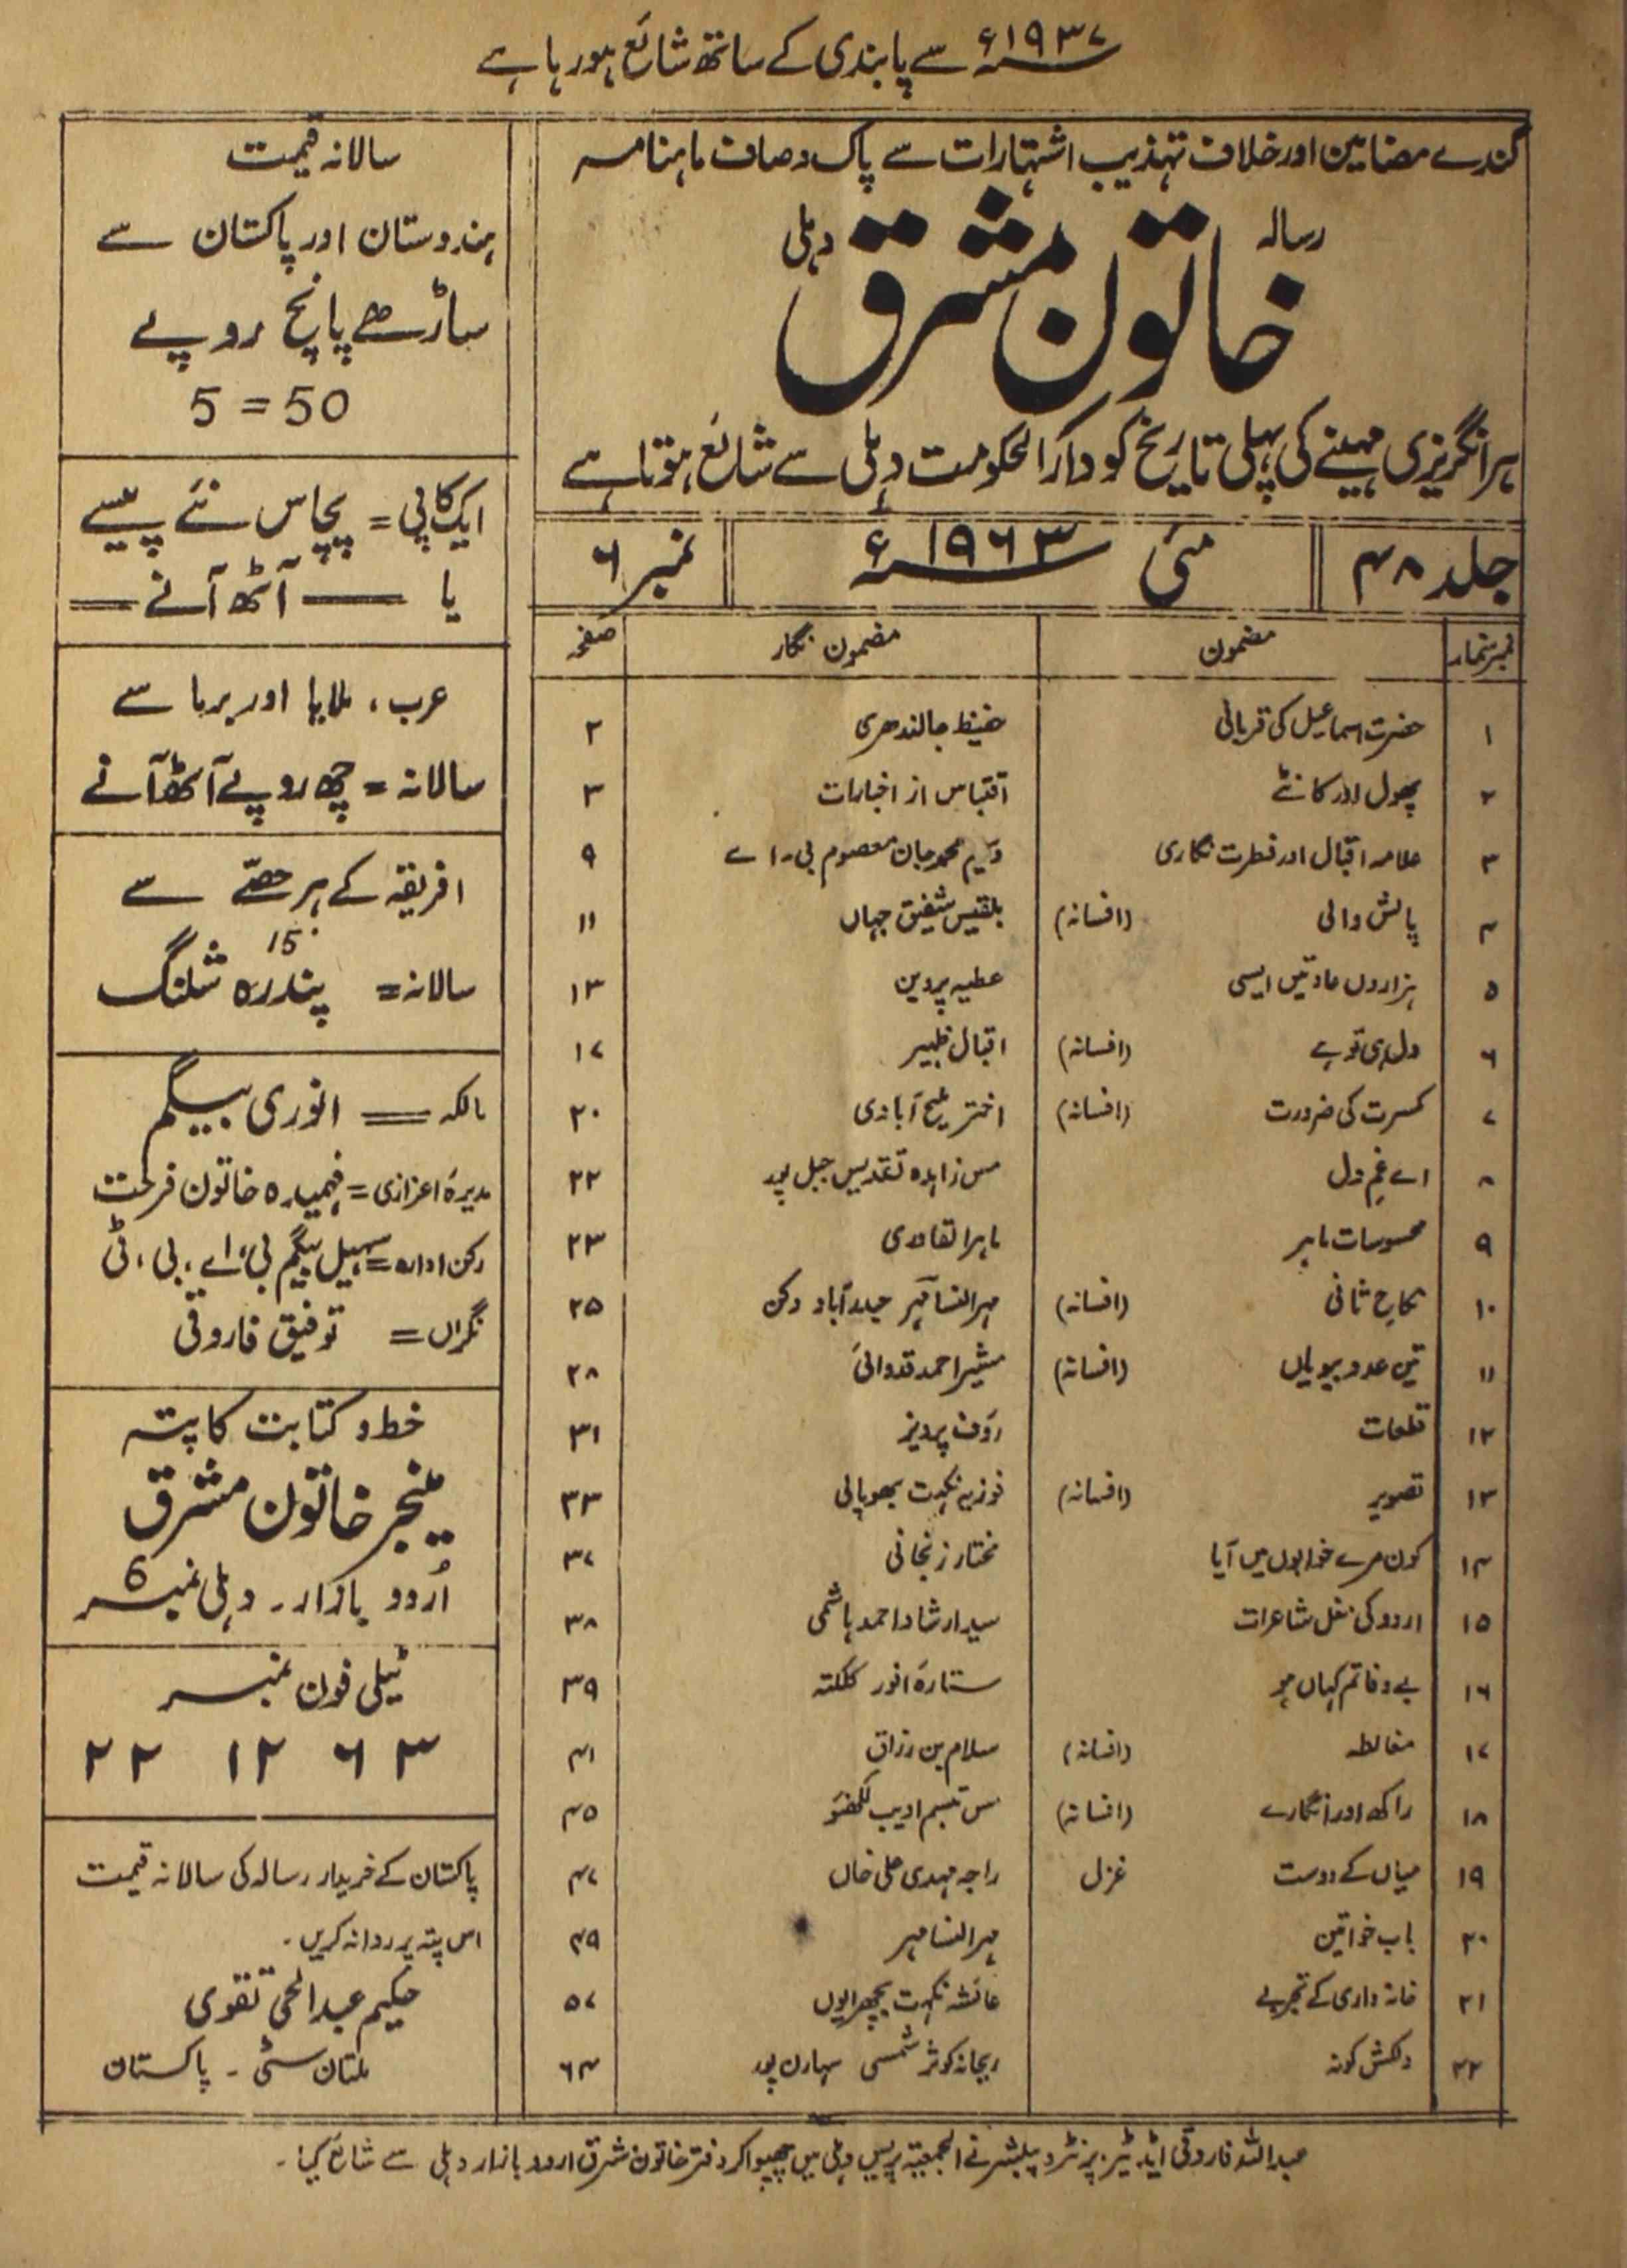 ۱۹۳۷ء سے پابندی کے ساتھ شائع ہو رہا ہے
گندے مضامین اور خلاف تہذیب اشتہارات سے پاک و صاف ماہنامہ
رسالہ خاتون مشرق دہلی
ہر انگریزی مہینے کی پہلی تاریخ کو دارالحکومت دہلی سے شائع ہوتا ہے
جلد ۴۸ مئی ۱۹۶۳ء نمبر ۶
نمبر شمار مضمون مضمون نگار صفحہ
۱ حضرت اسماعیل کی قربانی حفیظ جالندھری ۲
۲ پھول اور کانٹے اقتباس از اخبارات ۳
۳ علامہ اقبال اور فطرت نگاری محمد جان معصوم بی۔اے ۹
۴ پالش والی (افسانہ) بلقیس شفیق جہاں ۱۱
۵ ہزاروں عادتیں ایسی عطیہ پروین ۱۳
۶ دل ہی تو ہے (افسانہ) اقبال ظہیر ۱۷
۷ کسرت کی ضرورت (افسانہ) اختر ملیح آبادی ۲۰
۸ اے غم دل مس زاہدہ تقدیس جبل پور ۲۲
۹ محسوسات ماہر ماہر القادری ۲۳
۱۰ نکاح ثانی (افسانہ) مہر النسا مہر حیدرآباد دکن ۲۵
۱۱ تین عدد بیویاں (افسانہ) مشیر احمد قدوائی ۲۸
۱۲ قطعات رؤف پرویز ۳۱
۱۳ تصویر (افسانہ) فوزیہ نکہت بھوپالی ۳۳
۱۴ کون مرے خوابوں میں آیا مختار زنجانی ۳۷
۱۵ اردو کی مغل شاعرات سید ارشاد احمد ہاشمی ۳۸
۱۶ بے وفا تم کہاں ہو ستارہ انور کلکتہ ۳۹
۱۷ مغالطہ (افسانہ) سلام بن رزاق ۴۱
۱۸ راکھ اور انگارے (افسانہ) مس تبسم ادیب لکھنؤ ۴۵
۱۹ میاں کے دوست غزل راجہ مہدی علی خاں ۴۷
۲۰ باب خواتین مہر النسا مہر ۴۹
۲۱ خانہ داری کے تجربے عائشہ نکہت بچھرایوں ۵۷
۲۲ دلکش کونہ ریحانہ کوثر شمسی سہارن پور ۶۴
سالانہ قیمت
ہندوستان اور پاکستان سے
ساڑھے پانچ روپے
5=50
ایک کاپی = پچاس نئے پیسے
یا — آٹھ آنے =
عرب، ملایا اور برما سے
سالانہ = چھ روپے آٹھ آنے
افریقہ کے ہر حصّے سے
15
سالانہ = پندرہ شلنگ
مالکہ = انوری بیگم
مدیرہ اعزازی = فہمیدہ خاتون فرحت
رکن ادارہ = سہیل بیگم بی، اے، بی، ٹی
نگراں = توفیق فاروقی
خط و کتابت کا پتہ
منیجر خاتون مشرق
اُردو بازار۔ دہلی نمبر 6
ٹیلی فون نمبر
۲۲ ۱۲ ۶۳
پاکستان کے خریدار رسالہ کی سالانہ قیمت
اس پتہ پر روانہ کریں۔
حکیم عبدالحی نقوی
ملتان سٹی۔ پاکستان
عبداللہ فاروقی ایڈیٹر، پرنٹر و پبلشر نے الجمعیتہ پریس دہلی میں چھپوا کر دفتر خاتون مشرق اردو بازار دہلی سے شائع کیا۔